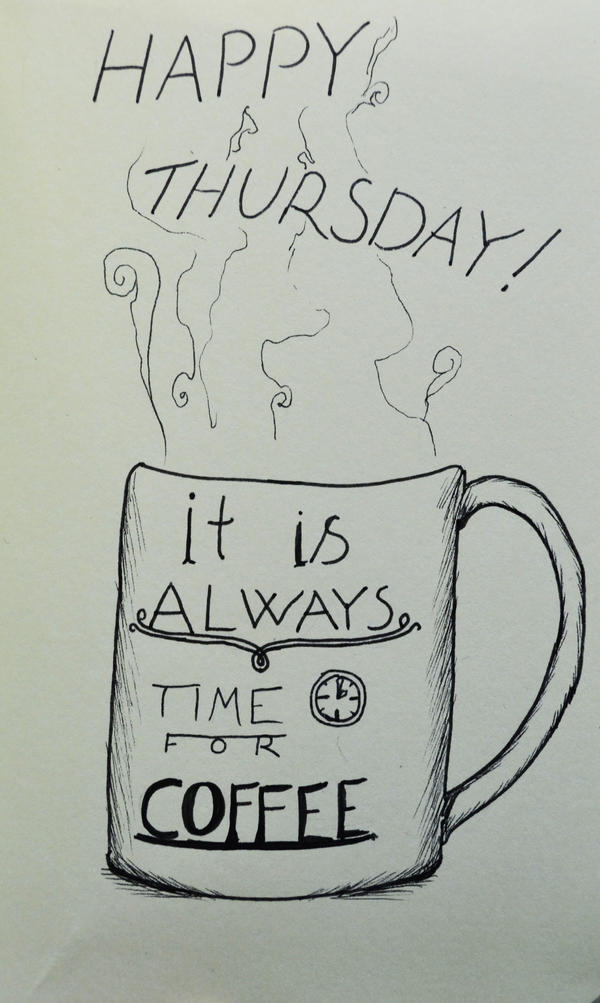 HAPPY
THURSDAY!
it is
ALWAYS
TIME
FOR
COFFEE